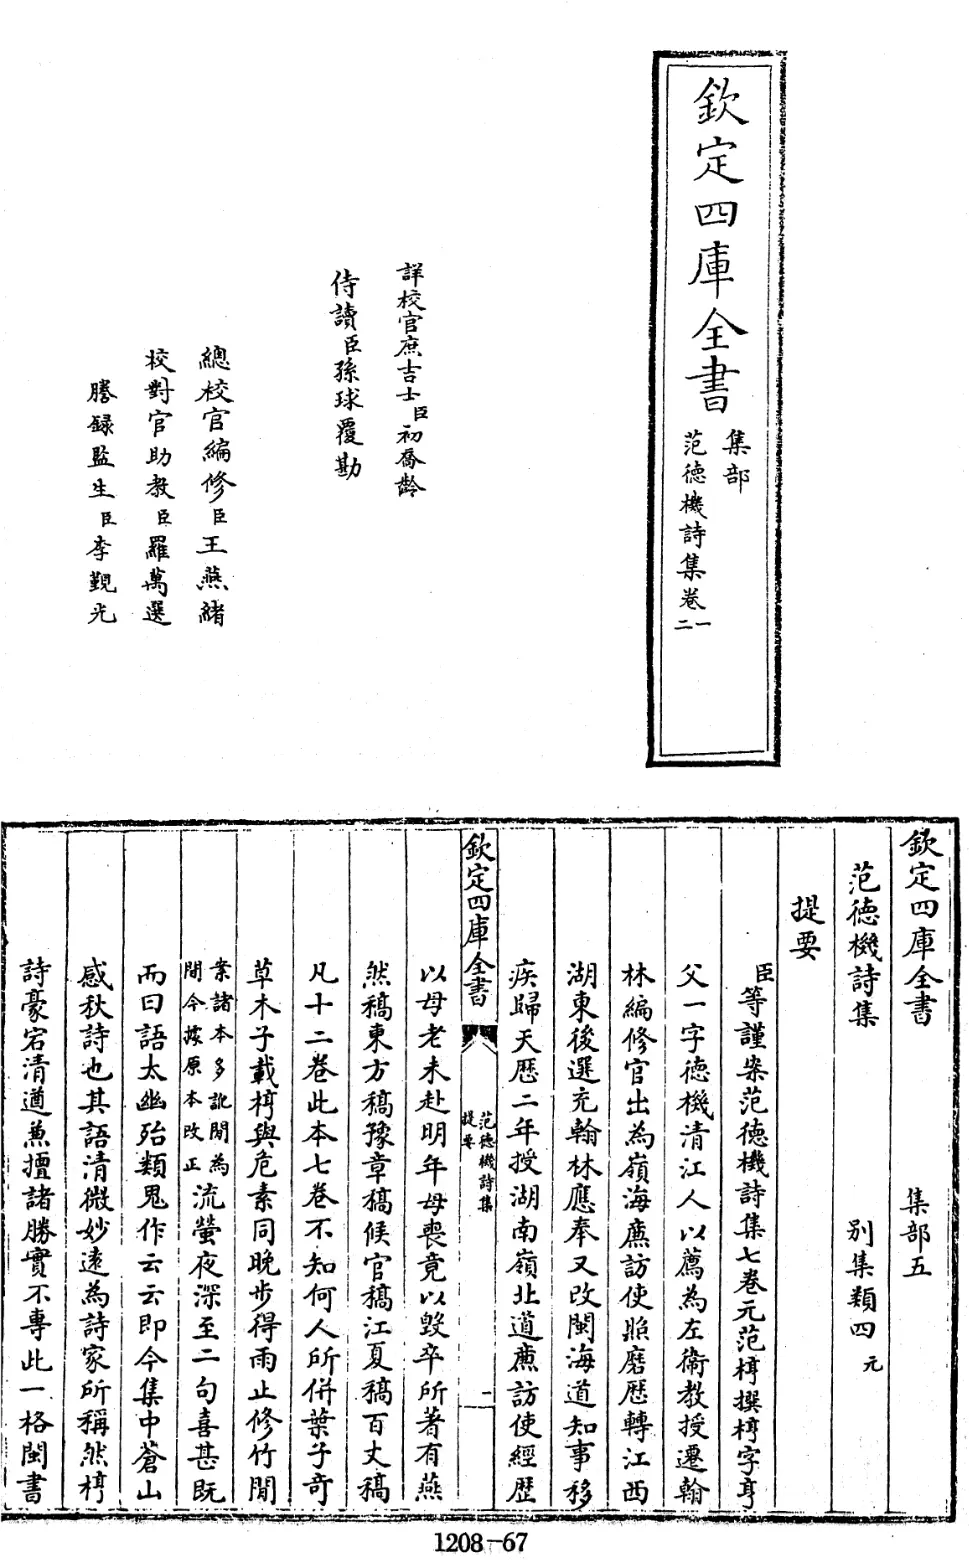 欽定四庫全書
集部
范德機詩集卷一
二
詳校官庶吉士臣初喬齡
侍讀臣孫球覆勘
總校官編修臣王燕緒
校對官助教臣羅萬選
謄録監生臣李覲光
欽定四庫全書 集部五
范德機詩集 別集類四 元
提要
臣等謹案范德機詩集七卷元范梈撰梈字亨
父一字德機清江人以薦為左衛教授遷翰
林編修官出為嶺海㢘訪使照磨歷轉江西
湖東後選充翰林應奉又改閩海道知事移
疾歸天歷二年授湖南嶺北道㢘訪使經歷
欽定四庫全書
范德機詩集
提要
一
以母老未赴明年母喪竟以毁卒所著有燕
然稿東方稿豫章稿候官稿江夏稿百丈稿
凡十二卷此本七卷不知何人所併葉子奇
草木子載梈與危素同晚步得雨止修竹閒
案諸本多訛閒為
間今㨿原本改正流螢夜深至二句喜甚既
而曰語太幽殆類鬼作云云即今集中蒼山
感秋詩也其語清微妙逺為詩家所稱然梈
詩豪宕清遒兼擅諸勝實不專此一格閩書
1208-67